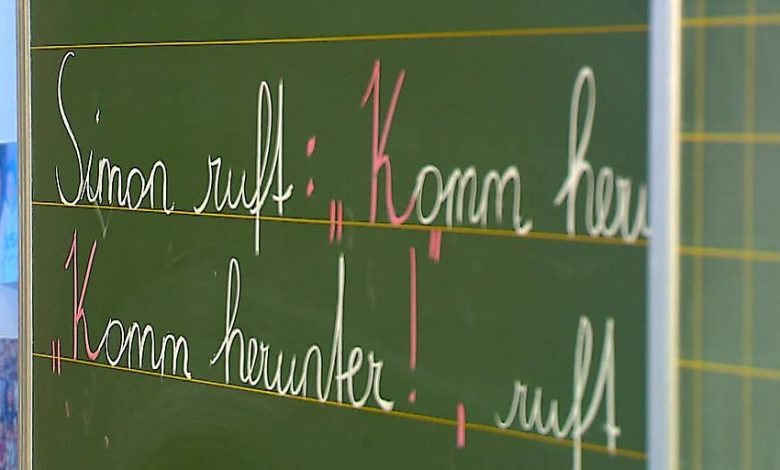 Simon ruft: „Komm heru
„Komm herunter!", ruft